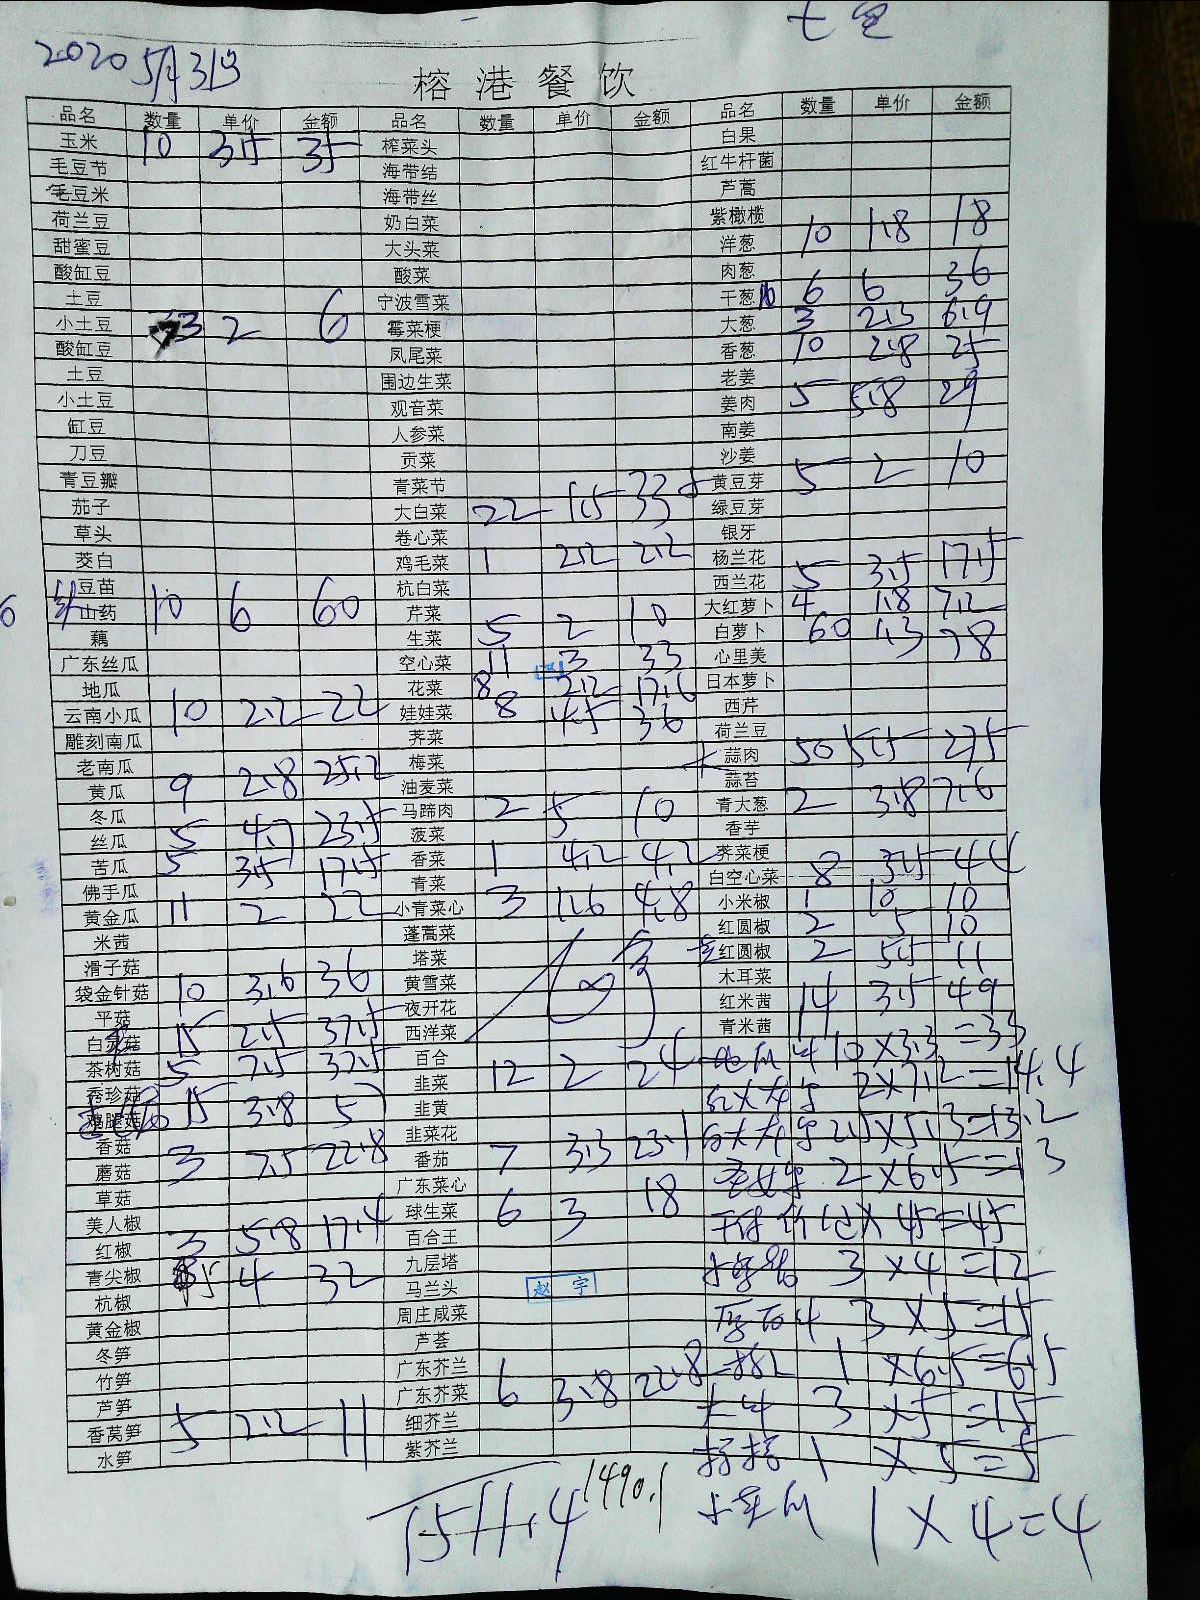 2020 5月31号
榕港餐饮
品名 数量 单价 金额 品名 数量 单价 金额 品名 数量 单价 金额
玉米 10 3.5 35 榨菜头 白果
毛豆节 海带结 红牛杆菌
毛豆米 海带丝 芦蒿
荷兰豆 奶白菜 紫橄榄
甜蜜豆 大头菜 洋葱 10 1.8 18
酸缸豆 酸菜 肉葱
土豆 宁波雪菜 干葱 6 6 36
小土豆 3 2 6 霉菜梗 大葱 3 2.3 6.9
酸缸豆 凤尾菜 香葱 10 2.8 25
土豆 围边生菜 老姜
小土豆 观音菜 姜肉 5 5.8 29
缸豆 人参菜 南姜
刀豆 贡菜 沙姜
青豆瓣 青菜节 黄豆芽 5 2 10
茄子 大白菜 22 1.5 33 绿豆芽
草头 卷心菜 银牙
茭白 鸡毛菜 1 2.2 2.2 杨兰花
豆苗 杭白菜 西兰花 5 3.5 17.5
山药 10 6 60 芹菜 大红萝卜 4 1.8 7.2
藕 生菜 5 2 10 白萝卜 60 1.3 78
广东丝瓜 空心菜 11 3 33 心里美
地瓜 花菜 8 2.2 17.6 日本萝卜
云南小瓜 10 2.2 22 娃娃菜 8 4.5 36 西芹
雕刻南瓜 荠菜 荷兰豆
老南瓜 梅菜 蒜肉 50 5.5 275
黄瓜 9 2.8 25.2 油麦菜 蒜苔
冬瓜 马蹄肉 2 5 10 青大葱 2 3.8 7.6
丝瓜 5 4.7 23.5 菠菜 香芋
苦瓜 5 3.5 17.5 香菜 1 4.2 4.2 荠菜梗
佛手瓜 青菜 白空心菜 8 44
黄金瓜 11 2 22 小青菜心 3 1.6 4.8 小米椒 1 10 10
米茜 蓬蒿菜 红圆椒 2 5 10
滑子菇 塔菜 红圆椒 2 5.5 11
袋金针菇 10 3.6 36 黄雪菜 木耳菜
平菇 夜开花 红米茜 14 3.5 49
白灵菇 15 2.5 37.5 西洋菜 青米茜
茶树菇 5 7.5 37.5 百合 10×3.3=33
秀珍菇 韭菜 12 2 24 2×7.2=14.4
鸡腿菇 15 3.8 韭黄
香菇 韭菜花 2.5×5.3=13.2
蘑菇 3 7.5 22.8 番茄 7 3.3 23.1 2×6.5=13
草菇 广东菜心
美人椒 球生菜 6 3 18 ×45=45
红椒 3 5.8 17.4 百合王
青尖椒 4 32 九层塔 3×4=12
杭椒 马兰头 赵宇
黄金椒 周庄咸菜 3×5=15
冬笋 芦荟
竹笋 广东芥兰 1×6.5=6.5
芦笋 广东芥菜 6 3.8 22.8 3×5=15
香莴笋 5 2.2 11 细芥兰
水笋 紫芥兰 1×5=5
1511.4 1490.1 1×4=4